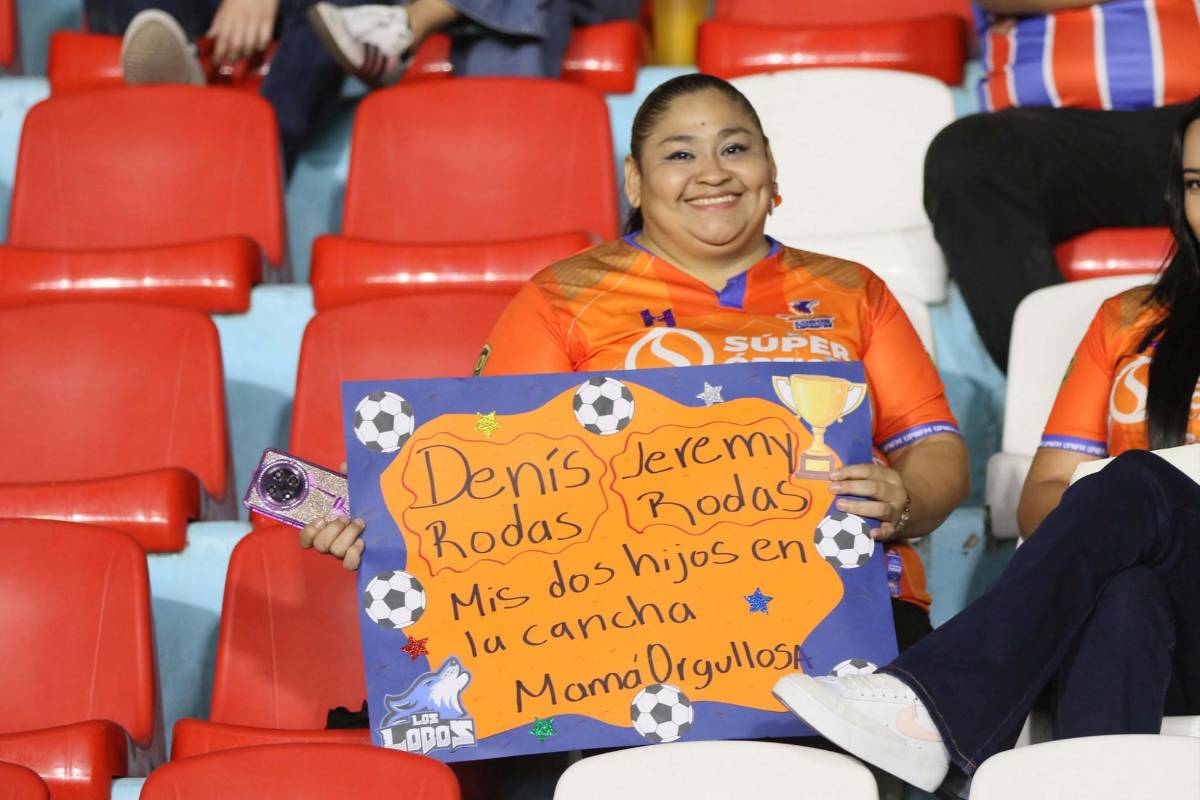 LOBOS
UPNFM
SÚPER
UPNFM
Denís
Rodas
Jeremy
Rodas
Mis dos hijos en
la cancha
Mamá OrgullosA
LOS
LOBOS